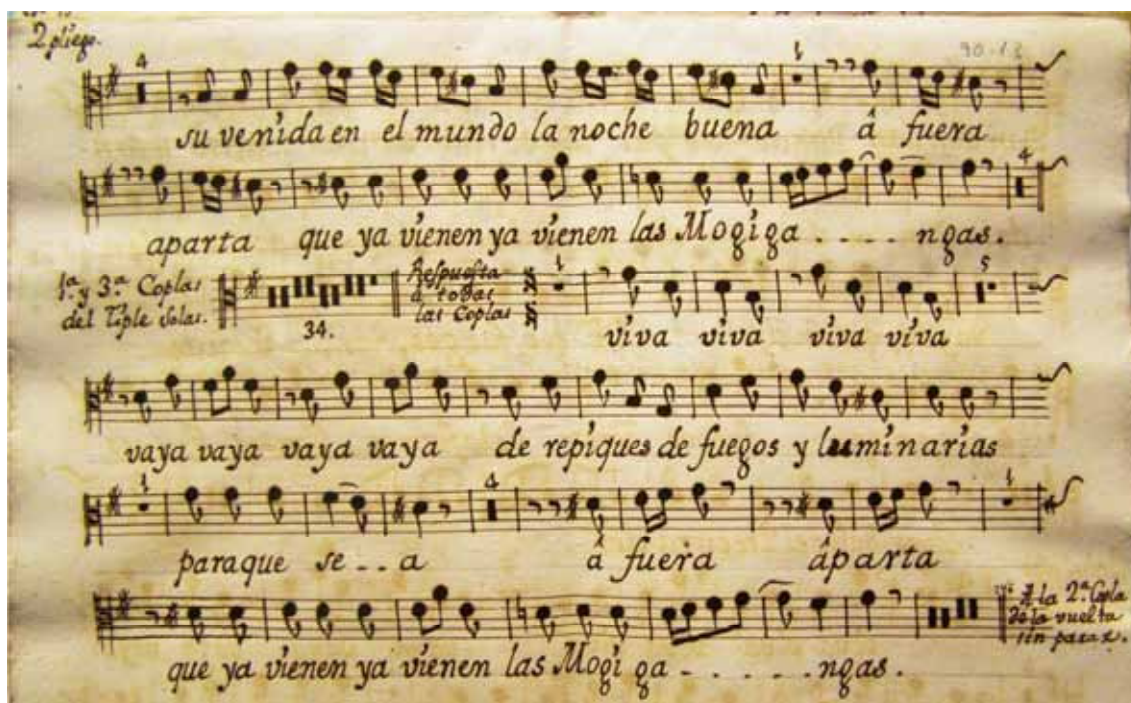 2 pliego.
90-13
4 1
su venida en el mundo la noche buena â fuera
4
aparta que ya vienen ya vienen las Mogiga . . . . ngas.
1.ª y 3.ª Coplas
del Tiple Solas.
34.
Respuesta
â todas
las Coplas
1 5
viva viva viva viva
vaya vaya vaya vaya de repiques de fuegos y luminarias
1 4 1
paraque se . . a â fuera âparta
que ya vienen ya vienen las Mogi ga . . . . . ngas.
A la 2.ª Copla
de la vuelta
sin parar.